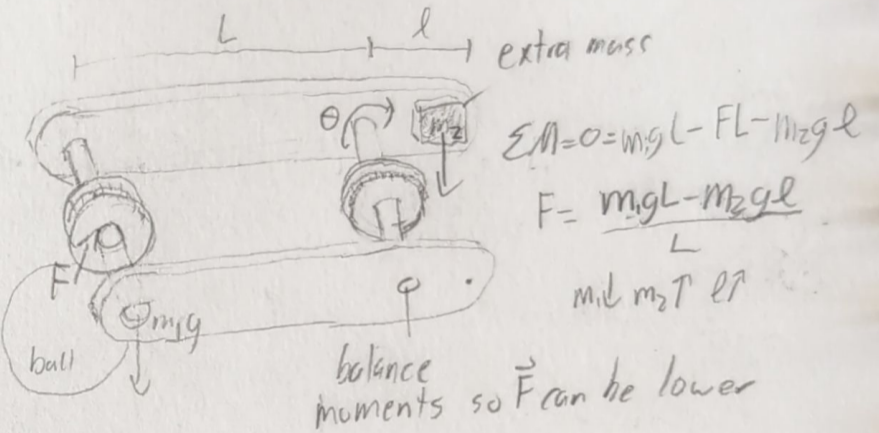 L
l
extra mass
θ
m₂
ΣM=0=m₁gL-FL-m₂gl
F= m₁gL-m₂gl
L
m₁↓ m₂↑ l↑
F
m₁g
ball
balance
moments so F⃗ can be lower